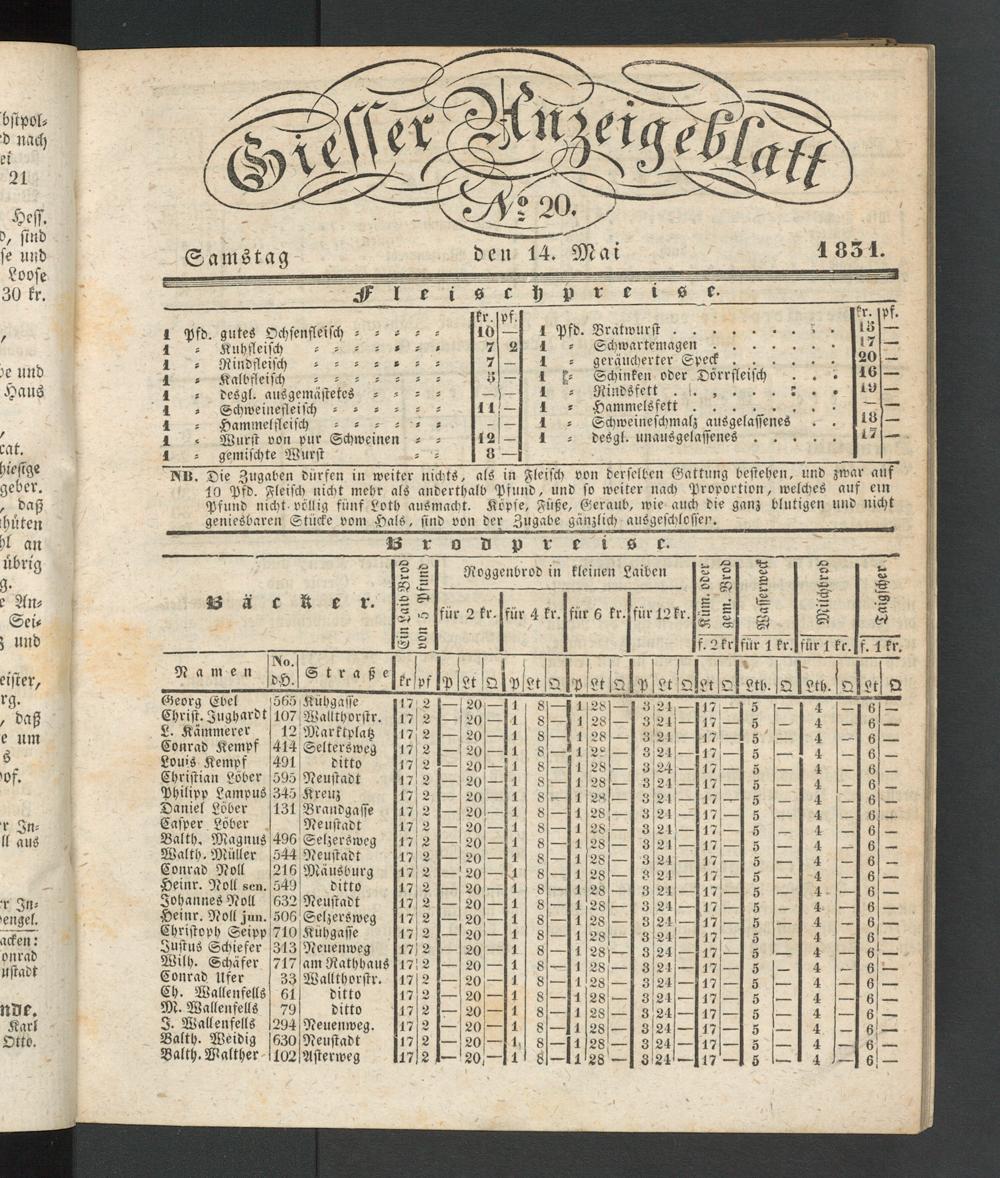 bstpol-
d nach
ei
21
Hess.
d, sind
se und
Loose
30 kr.
be und
Haus
cat.
hiesige
geber.
, daß
hüten
hl an
übrig
g.
e An-
Sei-
z und
eister,
rg.
, daß
e um
s
of.
r In-
ll aus
r In-
engel.
acken:
onrad
ustadt
nde.
Karl
Otto.
Giesser Anzeigeblatt
No. 20.
Samstag den 14. Mai 1831.
Fleischpreise.
kr. pf. kr. pf.
1 Pfd. gutes Ochsenfleisch - - - - - 10 — 1 Pfd. Bratwurst . . . . . . . . 15 —
1 - Kuhfleisch - - - - - - 7 2 1 - Schwartemagen . . . . . . 17 —
1 - Rindfleisch - - - - - - 7 — 1 - geräucherter Speck . . . . . 20 —
1 - Kalbfleisch - - - - - - 5 — 1 - Schinken oder Dörrfleisch . . . 16 —
1 - desgl. ausgemästetes - - - - — — 1 - Rindsfett . . . . . . . . 19 —
1 - Schweinefleisch - - - - - 11 — 1 - Hammelsfett . . . . . . . — —
1 - Hammelfleisch - - - - - — — 1 - Schweineschmalz ausgelassenes . . 18 —
1 - Wurst von pur Schweinen - - 12 — 1 - desgl. unausgelassenes . . . . . 17 —
1 - gemischte Wurst - - 8 —
NB. Die Zugaben dürfen in weiter nichts, als in Fleisch von derselben Gattung bestehen, und zwar auf
10 Pfd. Fleisch nicht mehr als anderthalb Pfund, und so weiter nach Proportion, welches auf ein
Pfund nicht völlig fünf Loth ausmacht. Köpfe, Füße, Geraub, wie auch die ganz blutigen und nicht
geniesbaren Stücke vom Hals, sind von der Zugabe gänzlich ausgeschlossen.
Brodpreise.
Bäcker.
Ein Laib Brod von 5 Pfund
Roggenbrod in kleinen Laiben
für 2 kr. für 4 kr. für 6 kr. für 12 kr.
Küm. oder gem. Brod
f. 2 kr
Wasserweck
für 1 kr.
Milchbrod
für 1 kr.
Taigscher
f. 1 kr.
Namen No. d.H. Straße kr pf P Lt Q P Lt Q P Lt Q P Lt Q Lt Q Lth. Q Lth. Q Lt Q
Georg Ebel 565 Kühgasse 17 2 — 20 — 1 8 — 1 28 — 3 24 — 17 — 5 — 4 — 6 —
Christ. Jughardt 107 Wallthorstr. 17 2 — 20 — 1 8 — 1 28 — 3 24 — 17 — 5 — 4 — 6 —
L. Kämmerer 12 Marktplatz 17 2 — 20 — 1 8 — 1 28 — 3 24 — 17 — 5 — 4 — 6 —
Conrad Kempf 414 Seltersweg 17 2 — 20 — 1 8 — 1 28 — 3 24 — 17 — 5 — 4 — 6 —
Louis Kempf 491 ditto 17 2 — 20 — 1 8 — 1 28 — 3 24 — 17 — 5 — 4 — 6 —
Christian Löber 595 Neustadt 17 2 — 20 — 1 8 — 1 28 — 3 24 — 17 — 5 — 4 — 6 —
Philipp Lampus 345 Kreuz 17 2 — 20 — 1 8 — 1 28 — 3 24 — 17 — 5 — 4 — 6 —
Daniel Löber 131 Brandgasse 17 2 — 20 — 1 8 — 1 28 — 3 24 — 17 — 5 — 4 — 6 —
Casper Löber Neustadt 17 2 — 20 — 1 8 — 1 28 — 3 24 — 17 — 5 — 4 — 6 —
Balth. Magnus 496 Selzersweg 17 2 — 20 — 1 8 — 1 28 — 3 24 — 17 — 5 — 4 — 6 —
Walth. Müller 544 Neustadt 17 2 — 20 — 1 8 — 1 28 — 3 24 — 17 — 5 — 4 — 6 —
Conrad Noll 216 Mäusburg 17 2 — 20 — 1 8 — 1 28 — 3 24 — 17 — 5 — 4 — 6 —
Heinr. Noll sen. 549 ditto 17 2 — 20 — 1 8 — 1 28 — 3 24 — 17 — 5 — 4 — 6 —
Johannes Noll 632 Neustadt 17 2 — 20 — 1 8 — 1 28 — 3 24 — 17 — 5 — 4 — 6 —
Heinr. Noll jun. 506 Selzersweg 17 2 — 20 — 1 8 — 1 28 — 3 24 — 17 — 5 — 4 — 6 —
Christoph Seipp 710 Kühgasse 17 2 — 20 — 1 8 — 1 28 — 3 24 — 17 — 5 — 4 — 6 —
Justus Schiefer 313 Neuenweg 17 2 — 20 — 1 8 — 1 28 — 3 24 — 17 — 5 — 4 — 6 —
Wilh. Schäfer 717 am Rathhaus 17 2 — 20 — 1 8 — 1 28 — 3 24 — 17 — 5 — 4 — 6 —
Conrad Ufer 33 Wallthorstr. 17 2 — 20 — 1 8 — 1 28 — 3 24 — 17 — 5 — 4 — 6 —
Ch. Wallenfells 61 ditto 17 2 — 20 — 1 8 — 1 28 — 3 24 — 17 — 5 — 4 — 6 —
M. Wallenfells 79 ditto 17 2 — 20 — 1 8 — 1 28 — 3 24 — 17 — 5 — 4 — 6 —
J. Wallenfells 294 Neuenweg. 17 2 — 20 — 1 8 — 1 28 — 3 24 — 17 — 5 — 4 — 6 —
Balth. Weidig 630 Neustadt 17 2 — 20 — 1 8 — 1 28 — 3 24 — 17 — 5 — 4 — 6 —
Balth. Walther 102 Asterweg 17 2 — 20 — 1 8 — 1 28 — 3 24 — 17 — 5 — 4 — 6 —